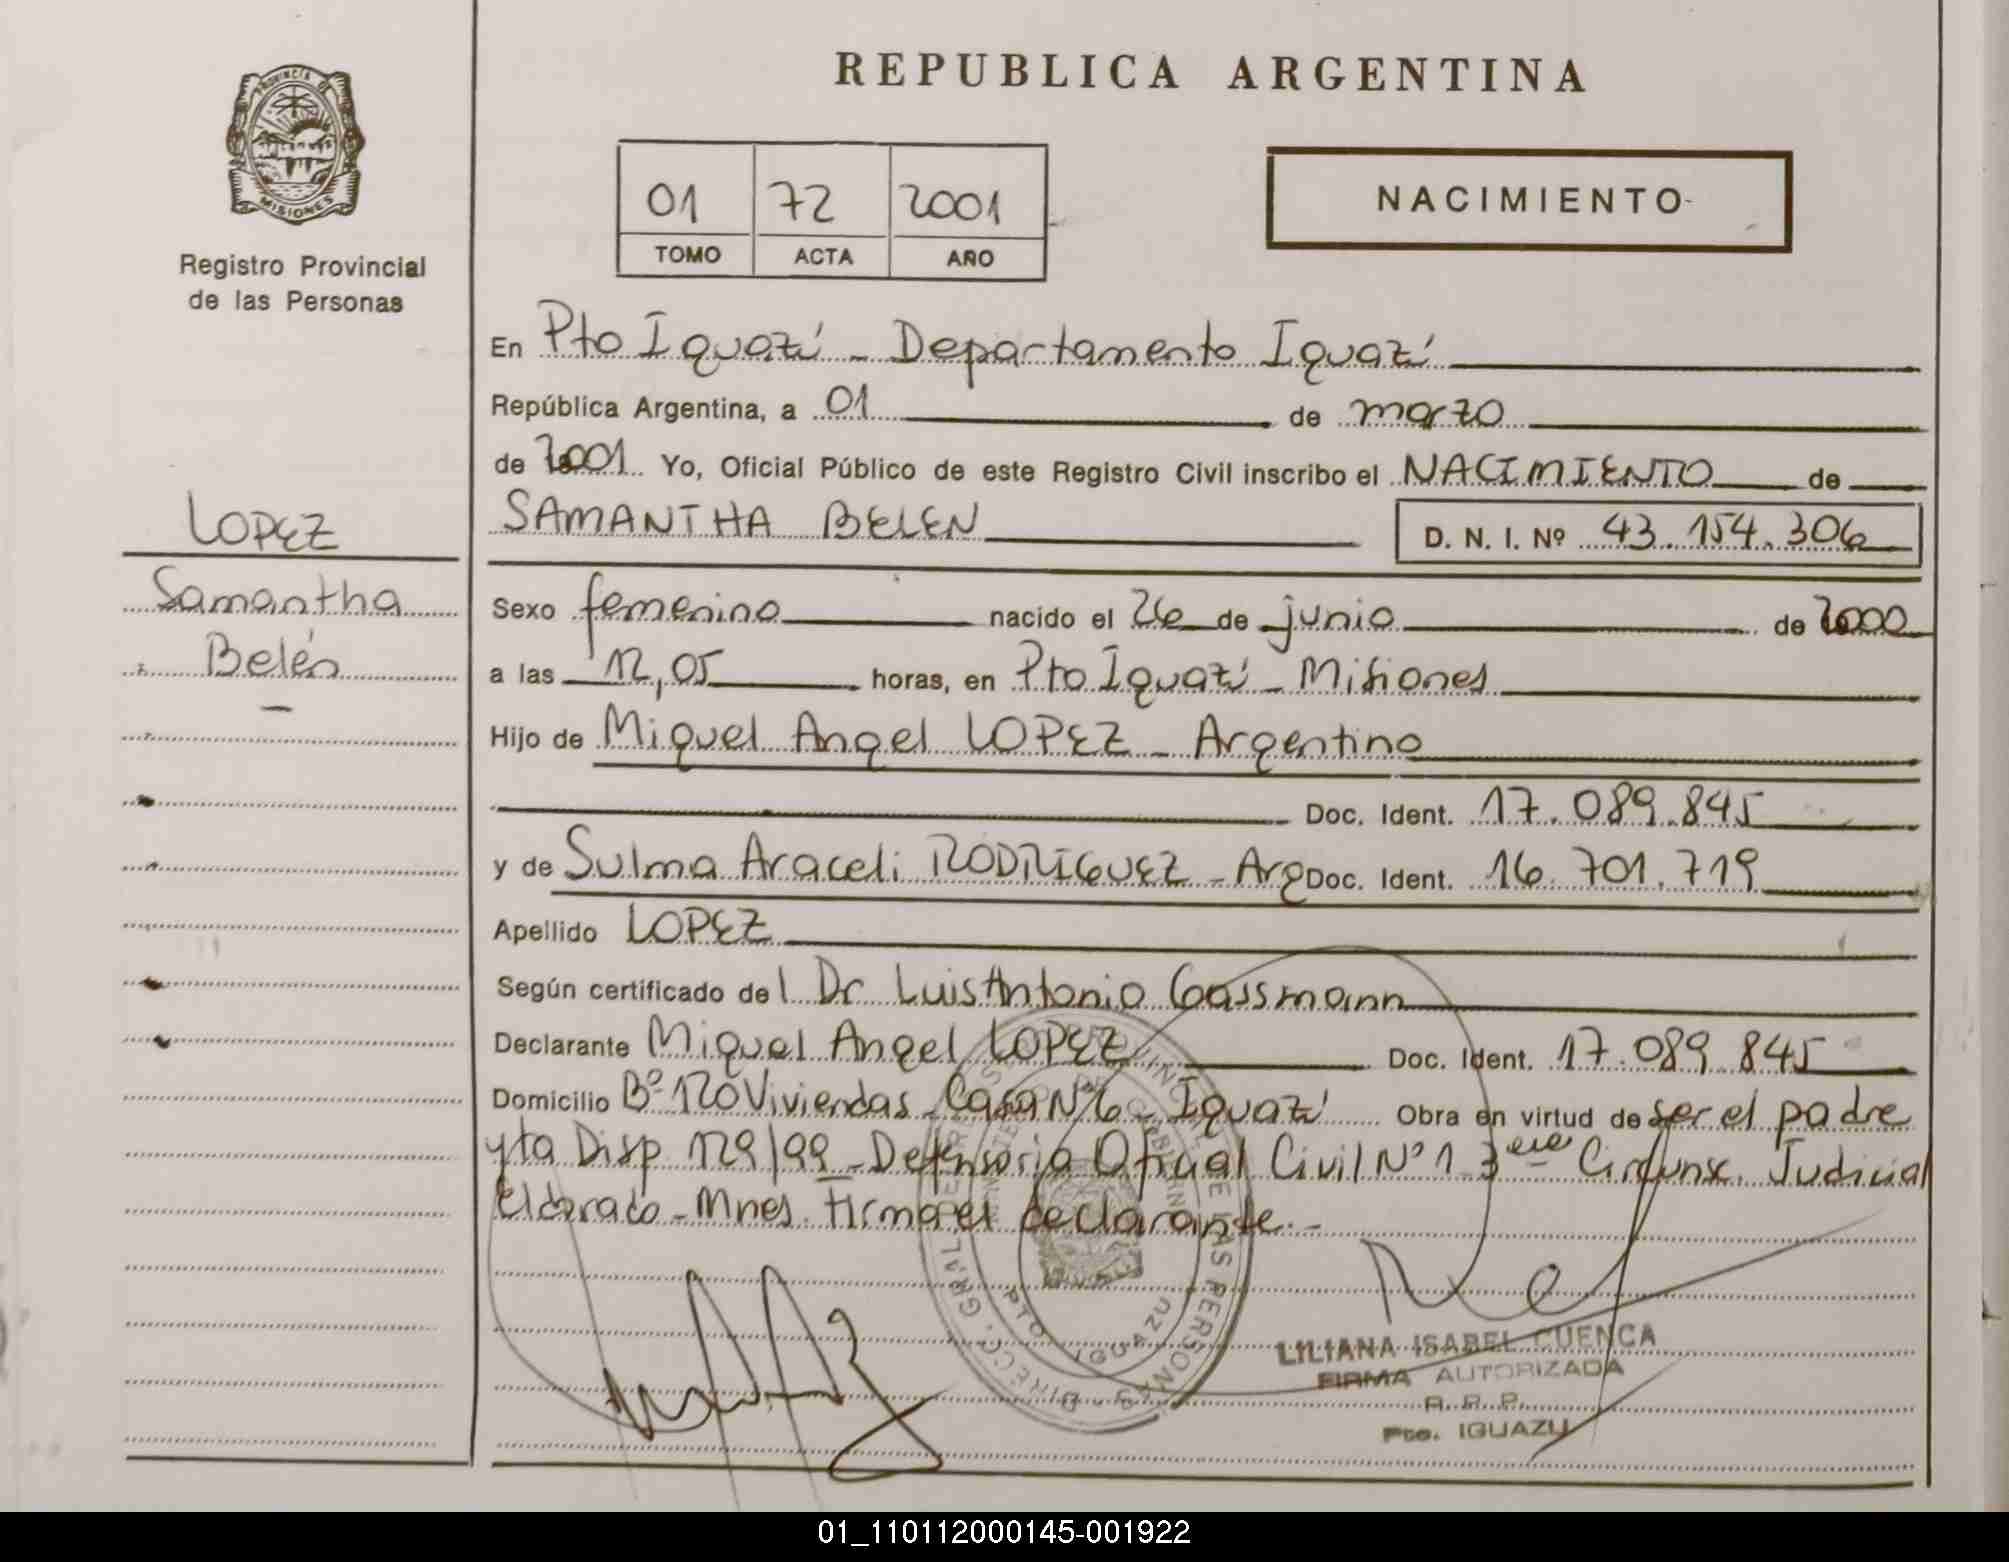 REPUBLICA ARGENTINA
PROVINCIA DE
MISIONES
Registro Provincial
de las Personas
01 72 2001
TOMO ACTA AÑO
NACIMIENTO
En Pto Iguazú - Departamento Iguazú
República Argentina, a 01 de marzo
de 2001 Yo, Oficial Público de este Registro Civil inscribo el NACIMIENTO de
LOPEZ
SAMANTHA BELEN D. N. I. Nº 43.154.306
Samantha
Belén
Sexo femenino nacido el 26 de junio de 2000
a las 12,05 horas, en Pto Iguazú - Misiones
Hijo de Miguel Angel LOPEZ - Argentino
Doc. Ident. 17.089.845
y de Sulma Araceli RODRIGUEZ - Arg Doc. Ident. 16.701.719
Apellido LOPEZ
Según certificado del Dr Luis Antonio Gassmann
Declarante Miguel Angel LOPEZ Doc. Ident. 17.089.845
Domicilio Bº 120 Viviendas - Casa Nº 6 - Iguazú Obra en virtud de ser el padre
yta Disp 129/99 - Defensoria Oficial Civil Nº 1 3era Circunsc. Judicial
Eldorado - Mnes. Firma el declarante.-
PTO IGUAZU
LILIANA ISABEL CUENCA
FIRMA AUTORIZADA
R.P.P.
Pto. IGUAZU
01_110112000145-001922